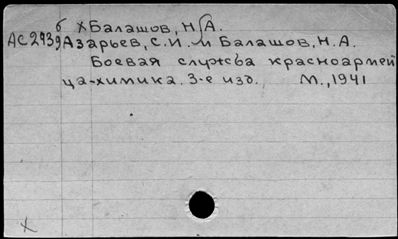 б Х Балашов, Н.А.
АС2939 Азарьев, С.И. и Балашов, Н.А.
Боевая служба красноармей
ца-химика. 3-е изд. М., 1941
Х